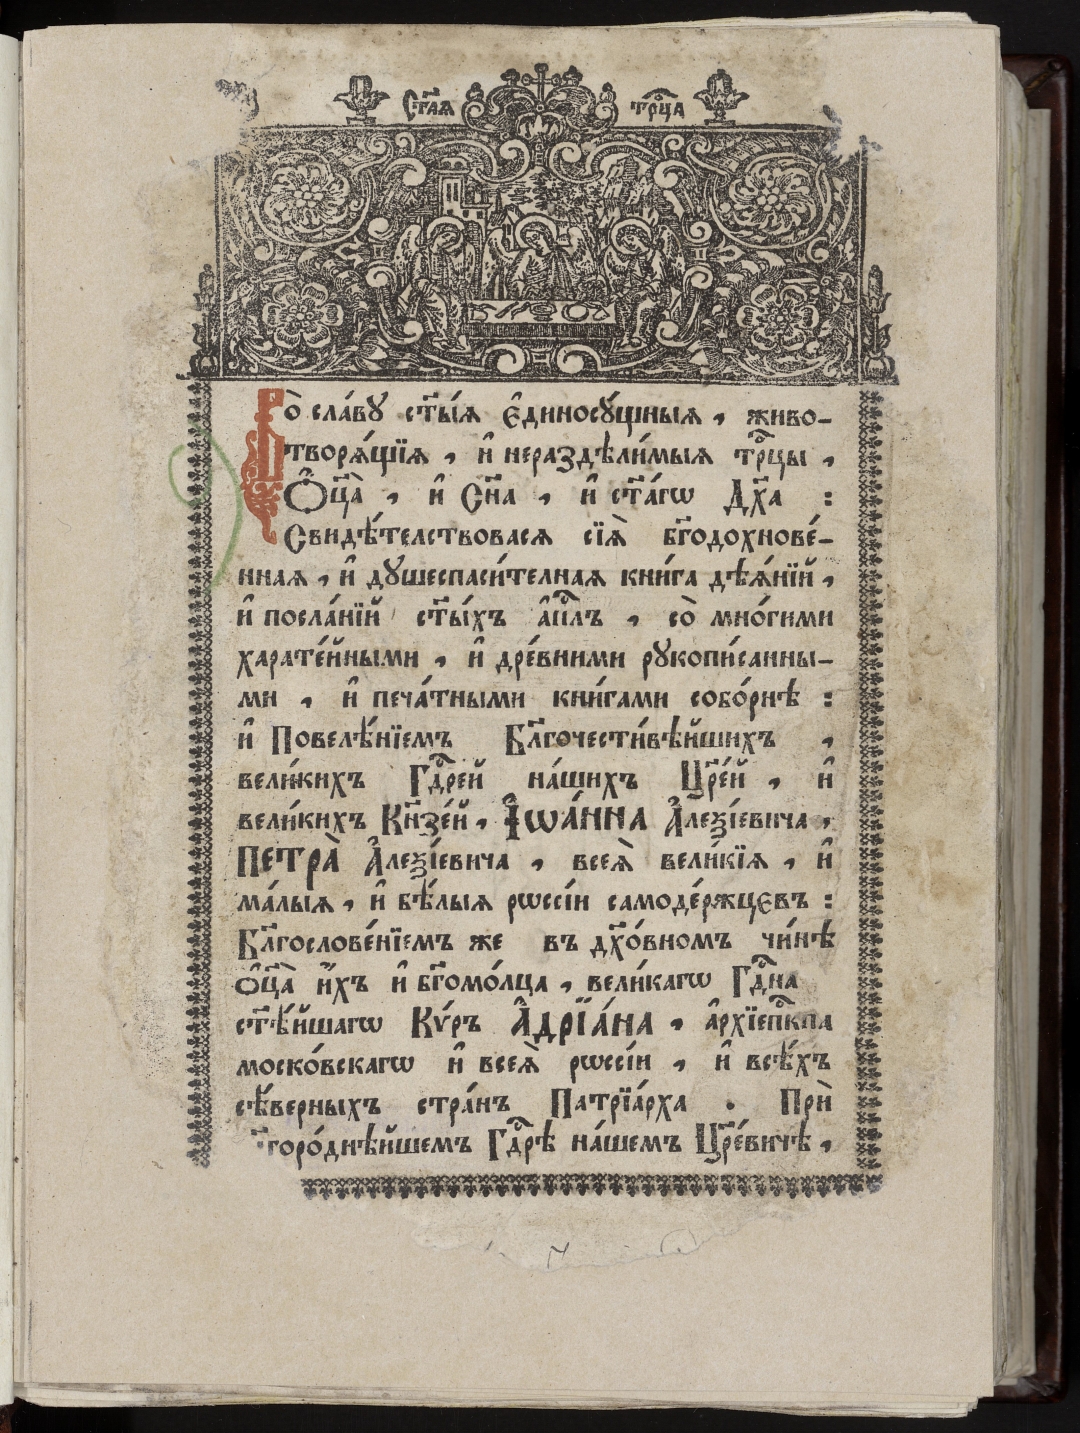 Ст҃ая трⷪ҇ца
Во сла́вꙋ ст҃ы́ѧ є҆диносꙋ́щныѧ , живо-
творѧ́щїѧ , и҆ нераздѣли́мыѧ трⷪ҇цы ,
Ѻ҆ц҃а̀ , и҆ Сн҃а , и҆ ст҃а́гѡ Дх҃а :
Свидѣ́телствовасѧ сїѧ̀ бг҃одохнове́-
ннаѧ , и҆ дꙋшеспаси́телнаѧ кни́га дѣѧ́нїй ,
и҆ посла́нїй ст҃ы́хъ а҆пⷭ҇лъ , со̀ мно́гими
харате́йными , и҆ дре́вними рꙋкопи́санны-
ми , и҆ печа́тными кни́гами собо́рнѣ :
и҆ Повелѣ́нїемъ Бл҃гочести́вѣйшихъ ,
вели́кихъ Гдⷭ҇рей на́шихъ Цр҃е́й , и҆
вели́кихъ Кн҃зе́й , І҆ѡа́нна А҆леѯі́евича ,
Петра̀ А҆леѯі́евича , всеѧ̀ вели́кїѧ , и҆
ма́лыѧ , и҆ бѣ́лыѧ рѡссі́и самоде́ржцєвъ :
Бл҃гослове́нїемъ же въ дх҃о́вномъ чи́нѣ
ѻ҆ц҃а̀ и҆́хъ и҆ бг҃омо́лца , вели́кагѡ Гдⷭ҇на
ст҃ѣ́йшагѡ Кѵ́ръ А҆дрїа́на , а҆рхїепⷭ҇кпа
моско́вскагѡ и҆ всеѧ̀ рѡссі́и , и҆ всѣ́хъ
сѣ́верныхъ стра́нъ Патрїа́рха . Прѝ
горо́днѣйшемъ Гдⷭ҇рѣ на́шемъ Цр҃е́вичѣ ,